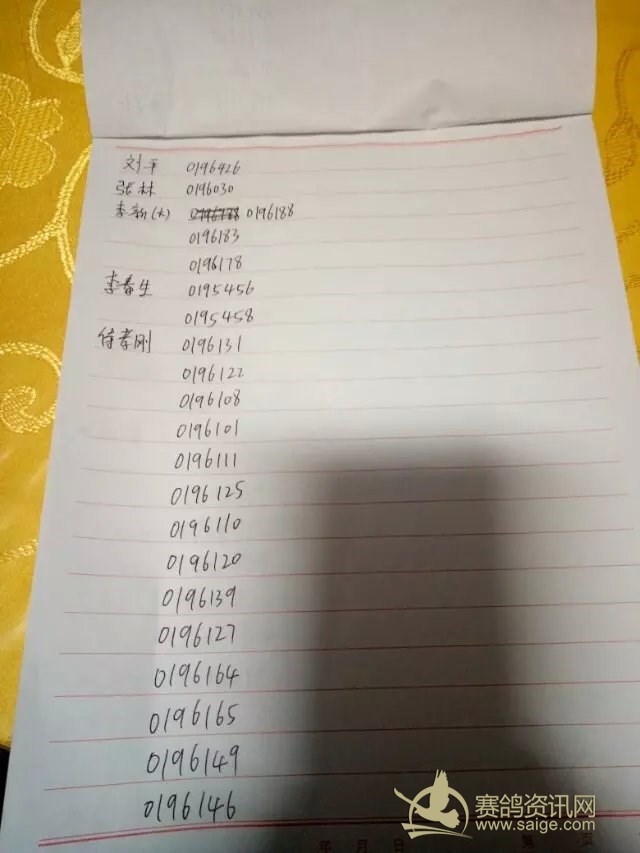 刘平 0196426
张林 0196030
李新(大) 0196188
0196183
0196178
李春生 0195456
0195458
付孝刚 0196131
0196122
0196108
0196101
0196111
0196125
0196110
0196120
0196139
0196127
0196164
0196165
0196149
0196146
年 月 日 第 页
赛鸽资讯网
www.saige.com